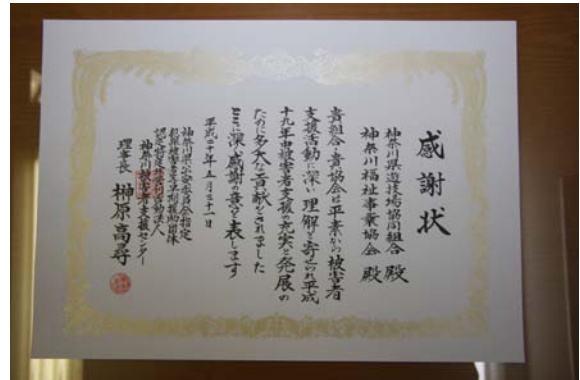 感謝状
神奈川県遊技場協同組合 殿
神奈川福祉事業協会 殿
貴組合・貴協会は平素から被害者
支援活動に深い理解を寄せられ平成
十九年中被害者支援の充実と発展の
ために多大な貢献をされました
ここに深く感謝の意を表します
平成二十年五月三十一日
神奈川県公安委員会指定
犯罪被害者等早期援助団体
認定特定非営利活動法人
神奈川被害者支援センター
理事長 榊原高尋